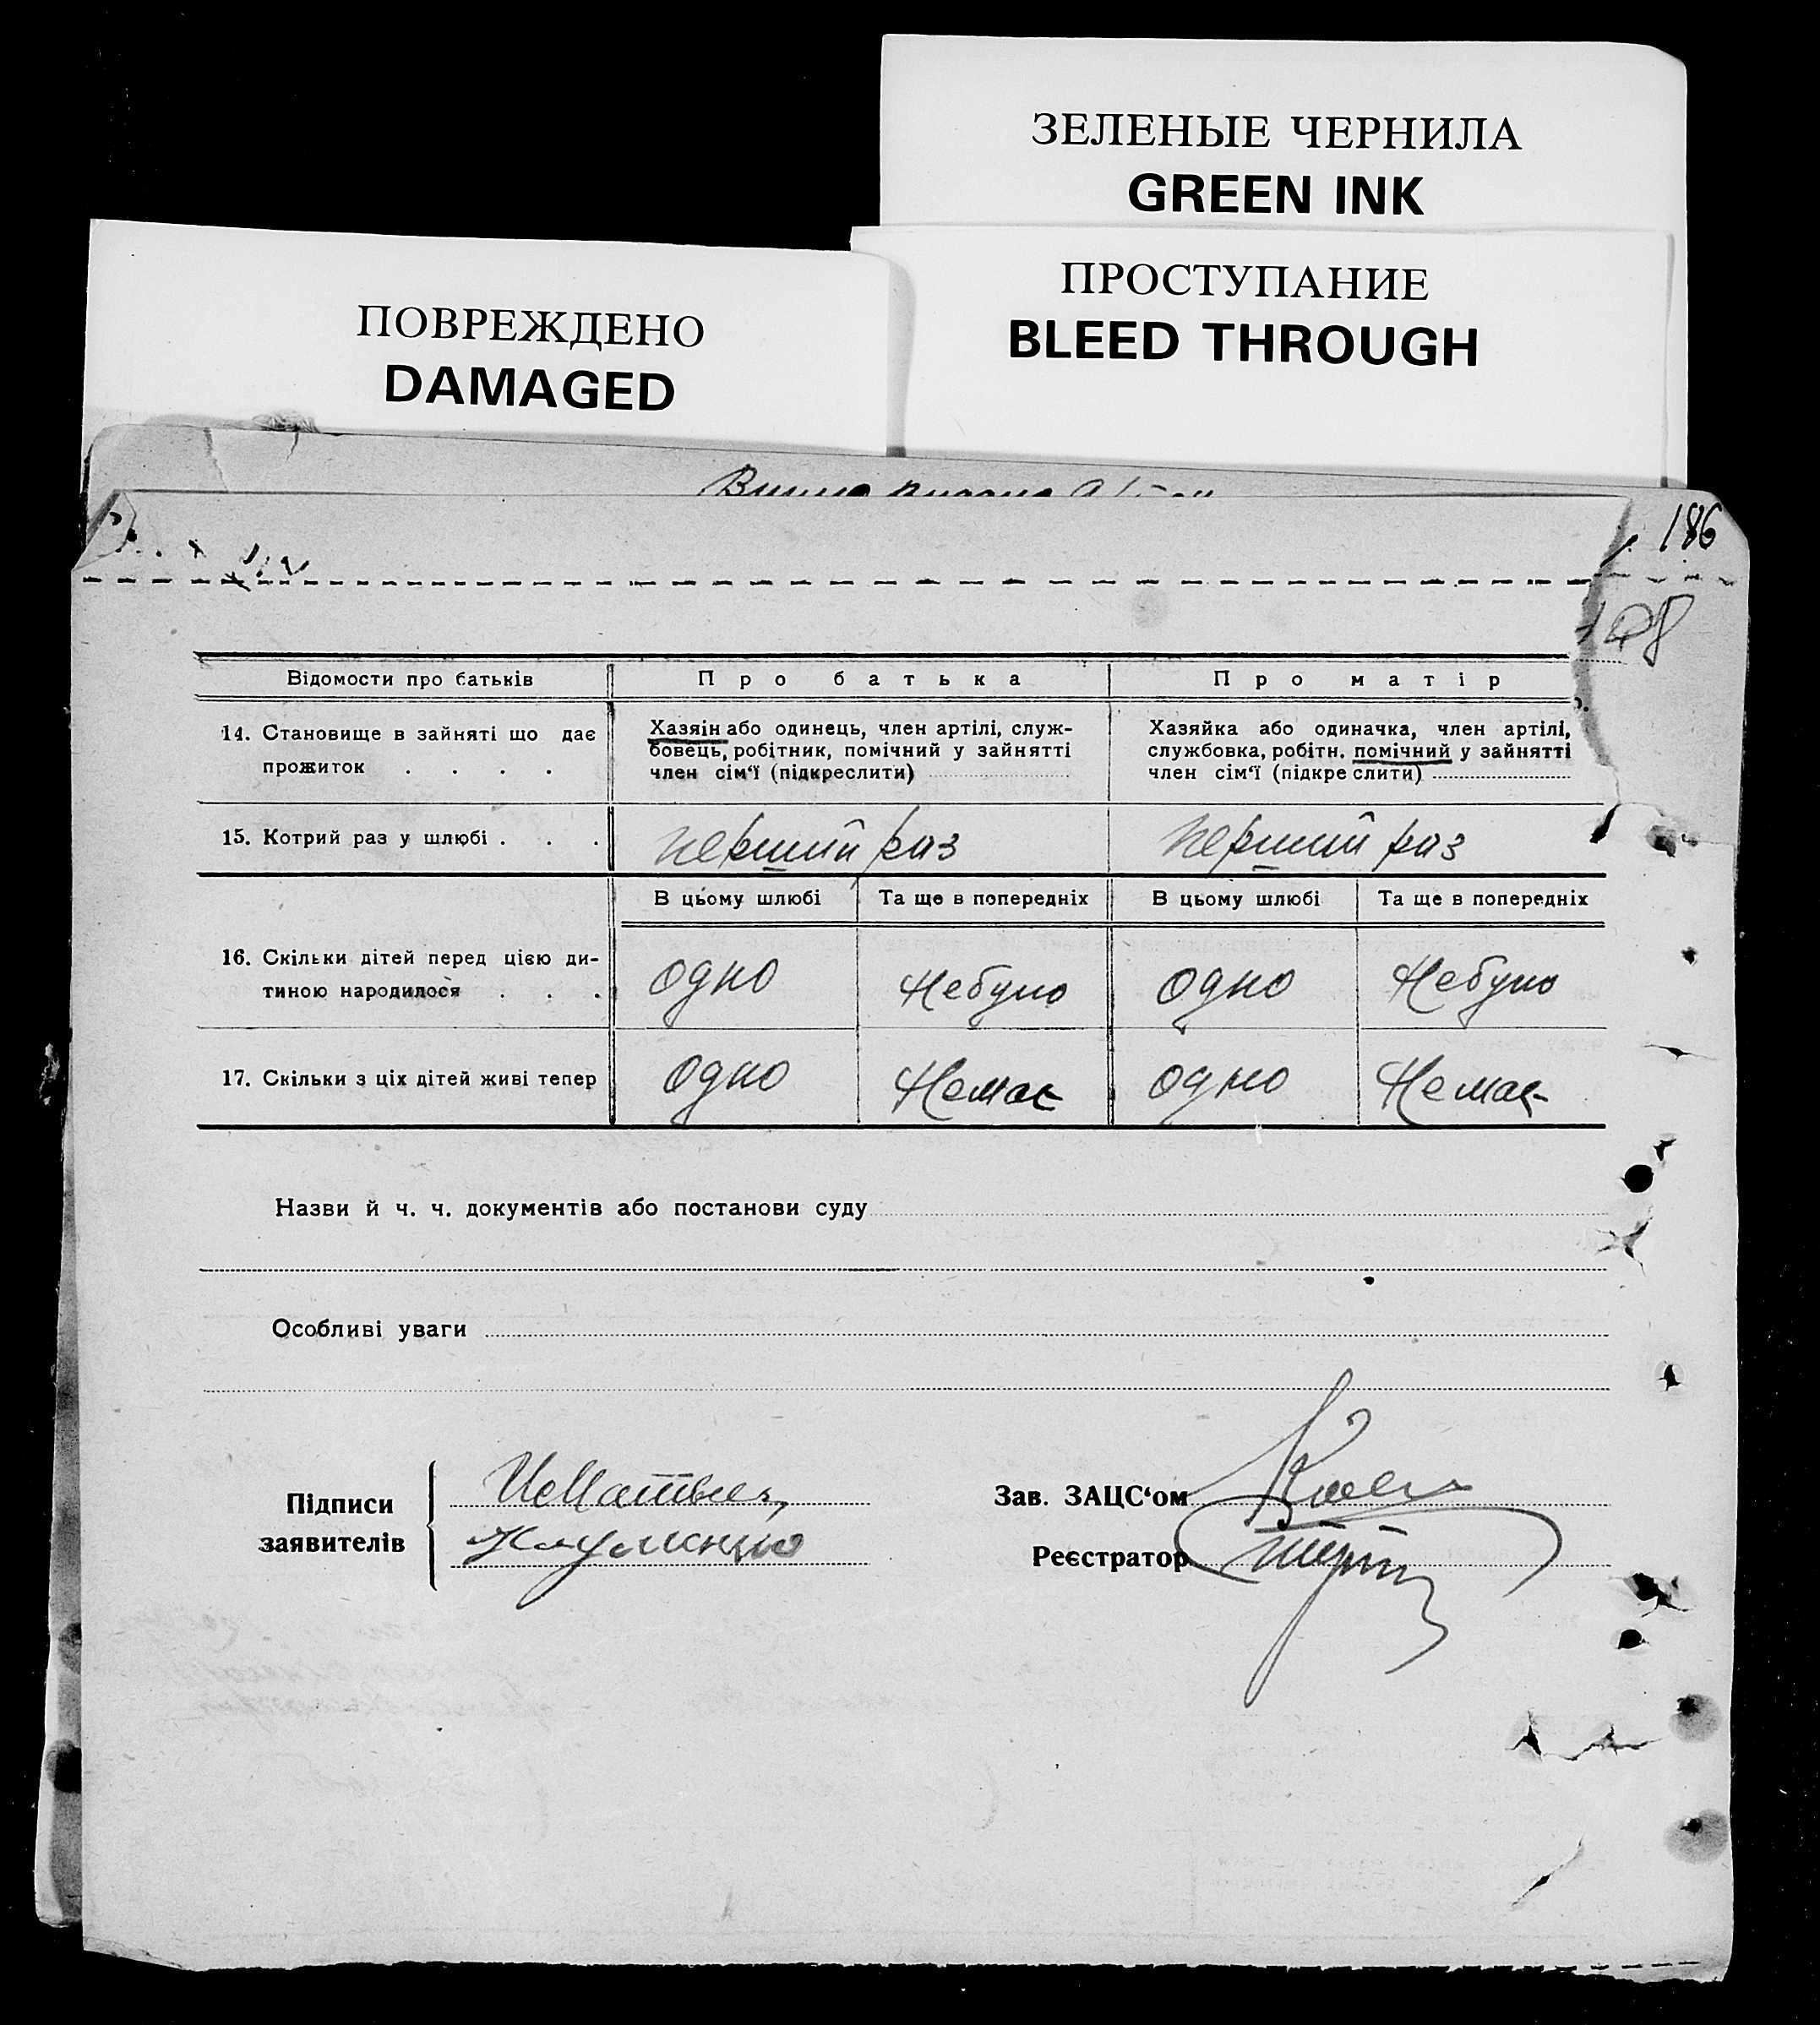 ЗЕЛЕНЫЕ ЧЕРНИЛА
GREEN INK
ПРОСТУПАНИЕ
BLEED THROUGH
ПОВРЕЖДЕНО
DAMAGED
186
Відомости про батьків Про батька Про матір
14. Становище в зайняті що дає прожиток . . . .
Хазяін або одинець, член артілі, служ-
бовець, робітник, помічний у зайнятті
член сім‘ї (підкреслити)
Хазяйка або одиначка, член артілі,
службовка, робітн. помічний у зайнятті
член сім‘ї (підкреслити)
15. Котрий раз у шлюбі . . . перший раз перший раз
В цьому шлюбі Та ще в попередніх В цьому шлюбі Та ще в попередніх
16. Скільки дітей перед цією ди-
тиною народилося . . . одно Небуло одно Небуло
17. Скільки з ціх дітей живі тепер одно Немає одно Немає
Назви й ч. ч. документів або постанови суду
Особливі уваги
Підписи
заявителів
Зав. ЗАЦС‘ом
Реєстратор